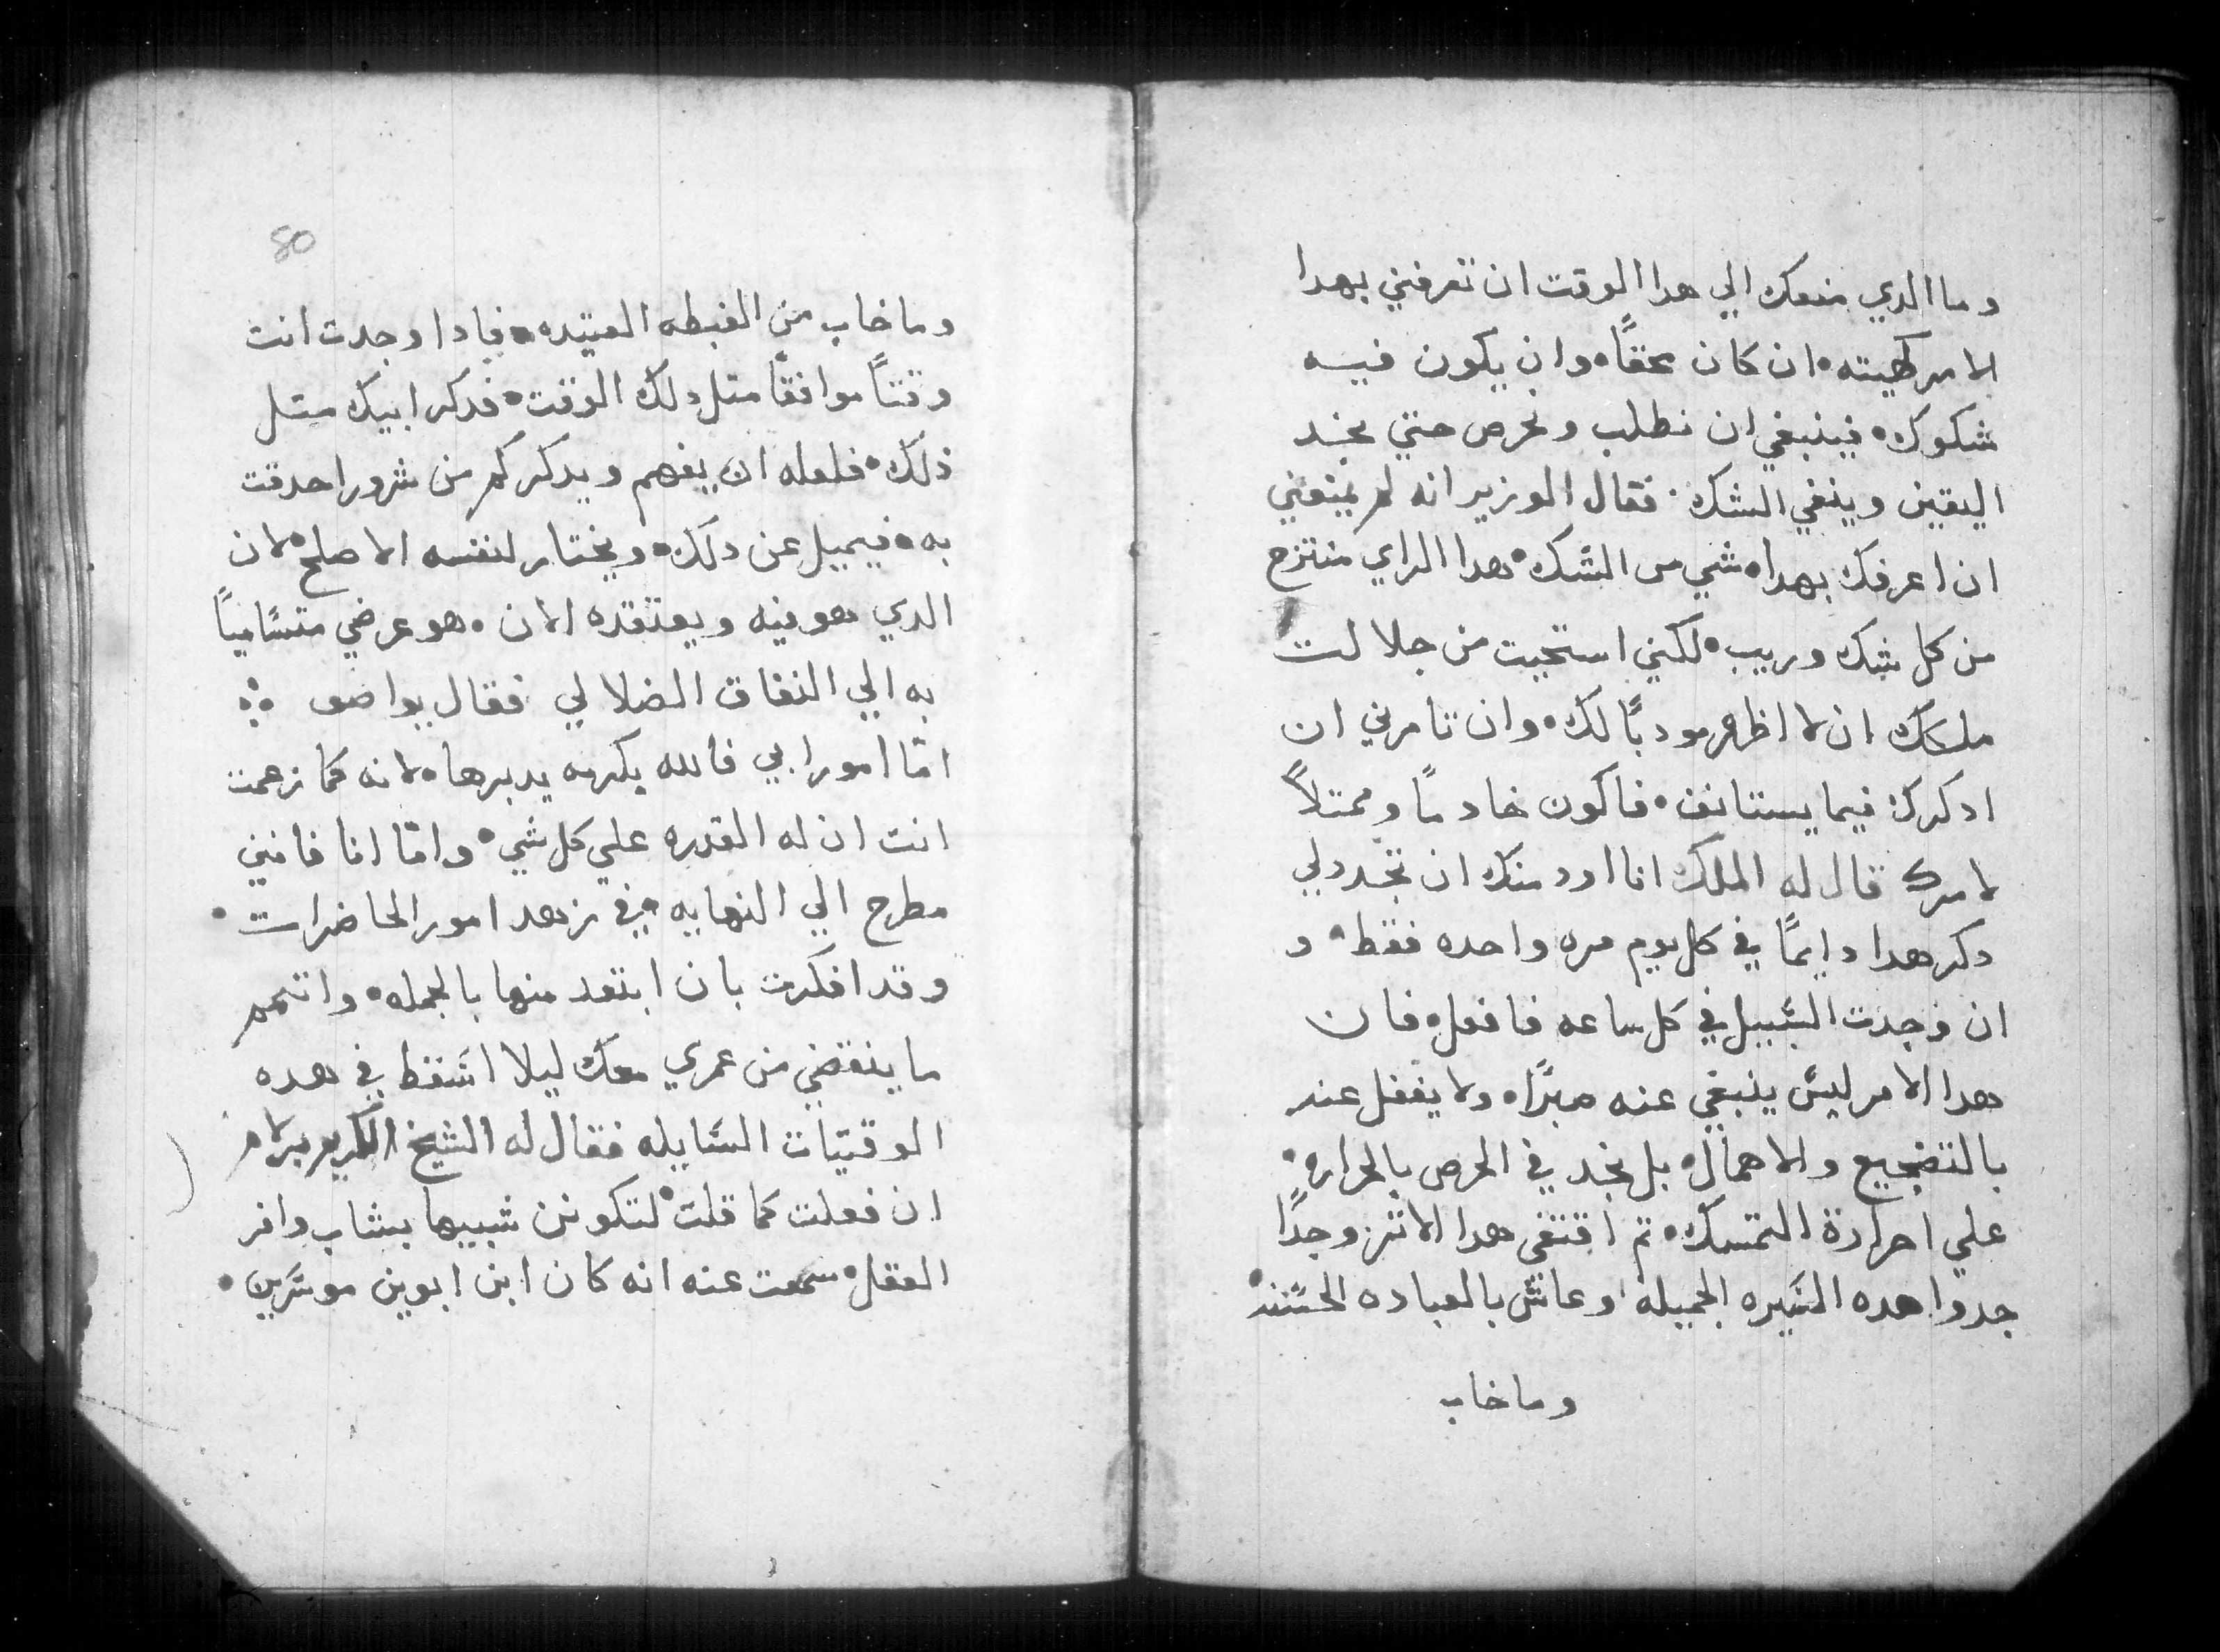 وما الدي منعك الي هدا الوقت ان تعرفني بهدا
الامر كهيته • ان كان محققًا • وان يكون فيه
شكوك • فينبغي ان نطلب ونحرص حتي نجد
اليقين وينفي الشك • فقال الوزير انه لم يمنعني
ان اعرفك بهدا • شي من الشك • هدا الراي منتزح
من كل شك وريب • لكني استحيت من جلالت
ملكك ان لا اظهر مودبًا لك • وان تامرني ان
ادكرك فيما يستانف • فاكون خادمًا وممتلاً
لامرك قال له الملك انا اود منك ان تجددلي
دكر هدا دايمًا في كل يوم مره واحده فقط • و
ان وجدت السبيل في كل ساعه فافعل • فان
هدا الامر ليس ينبغي عنه مبرًا • ولا يغفل عنه
بالتضجيع والاهمال • بل نجد في الحرص بالحراره •
علي احرارة التمسك • تم اقتفي هدا الاتر وجدًا
جدوا هده السيره الجميله وعاش بالعباده الحسنه •
وما خاب
80
وما خاب من الغبطه العتيده • فادا وجدت انت
وقتاً موافقًا متل دلك الوقت • فدكر ابيك متل
ذلك • فلعله ان يفهم ويدكر كم من شرور احدقت
به • فيميل عن دلك • ويختار لنفسه الاصلح • لان
الدي هو فيه ويعتقده الان • هو عرضي متساميًا
به الي النفاق الضلالي فقال يواصف ∴
امّا امور ابي فالله بكرمه يدبرها • لانه كما زعمت
انت ان له القدره علي كل شي • وامّا انا فانني
مطرح الي النهايه • في زهد امور الحاضرات •
وقد افكرت بان ابتعد منها بالجمله • واتمم
ما ينقضي من عمري معك ليلا اسقط في هده
الوقتيات السايله فقال له الشيخ الكريم برلام
ان فعلت كما قلت • لتكونن شبيها بشاب وافر
العقل • سمعت عنه انه كان ابن ابوين موسرين •